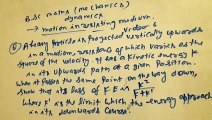 B.Sc maths (mechanics)
dynamics
→ motion in resisting medium
video 6
A heavy particle is Projected vertically upwards
in a medium, resistance of which varies as the
square of the velocity. It has a kinetic energy K
in its upwards Path at a given position.
When it Passes the same Point on the way down,
show that its loss of K.E is K²/K+K'
where K' is the limit which the energy approach
in its downwards course.